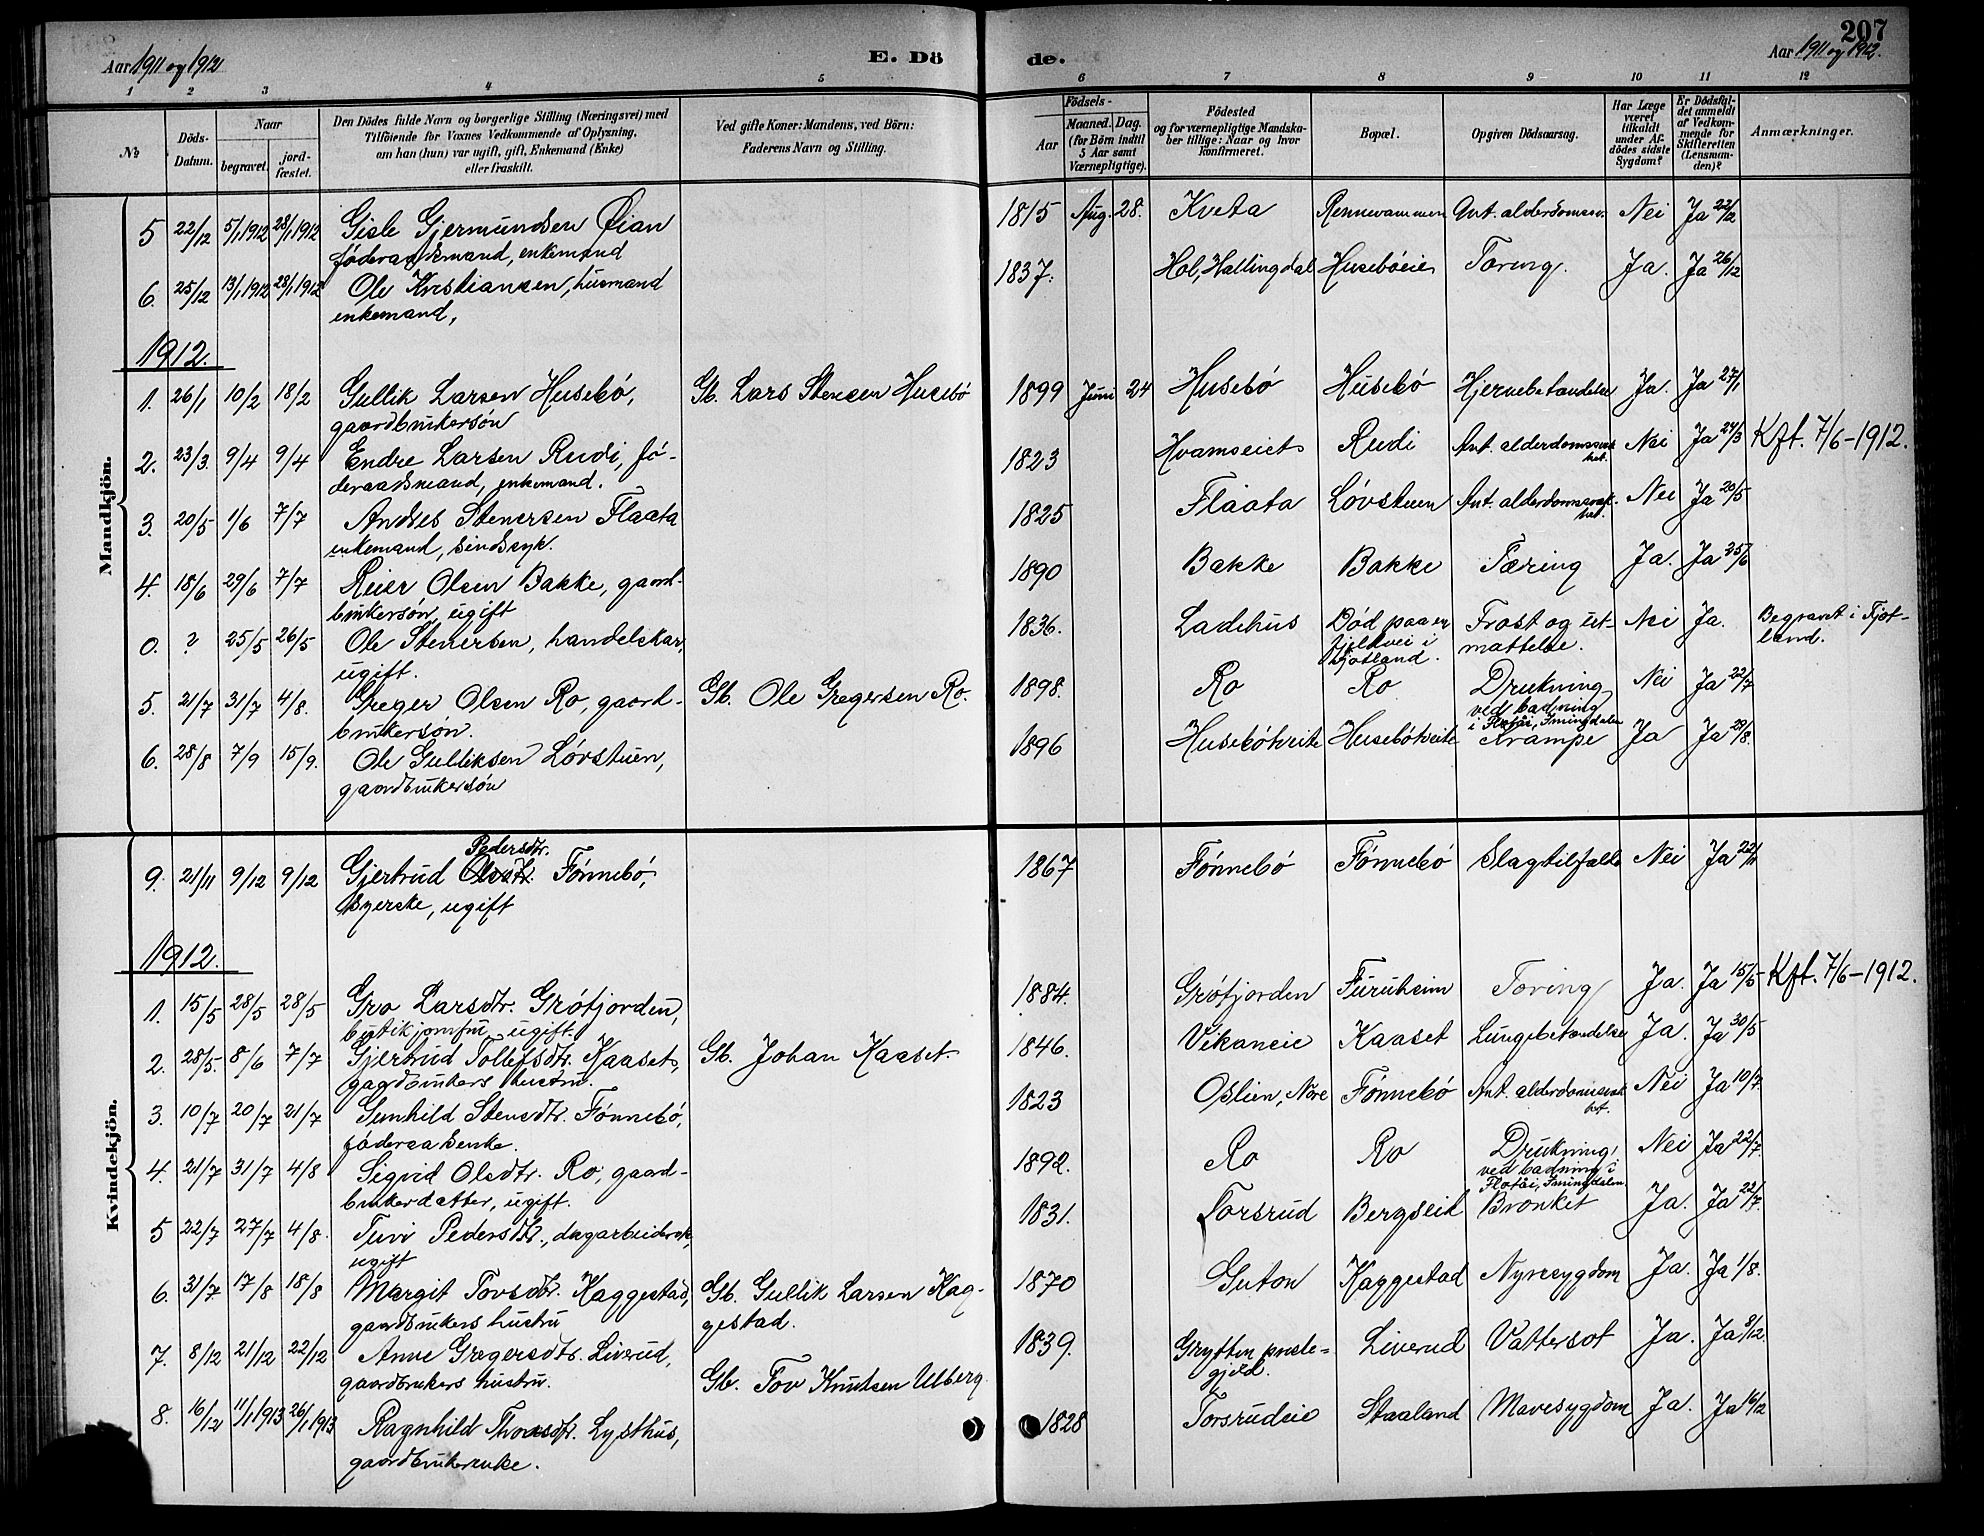 207
Aar 1911 og 1912
E. Dö
de.
Aar 1911 og 1912.
1 2 3 4 5 6 7 8 9 10 11 12
№
Döds-
Datum.
Naar
begravet.
jord-
fæstet.
Den Dödes fulde Navn og borgerlige Stilling (Næringsvei) med
Tilföiende for Voxnes Vedkommende af Oplysning,
om han (hun) var ugift, gift, Enkemand (Enke)
eller fraskilt.
Ved gifte Koner: Mandens, ved Börn:
Faderens Navn og Stilling.
Födsels-
Aar
Maaned. Dag.
(for Börn indtil
5 Aar samt
Værnepligtige).
Födested
og for værnepligtige Mandska-
ber tillige: Naar og hvor
konfirmeret.
Bopæl.
Opgiven Dödsaarsag.
Har Læge
været
tilkaldt
under Af-
dödes sidste
Sygdom?
Er Dödsfal-
det anmeldt
af Vedkom-
mende for
Skifteretten
(Lensman-
den)?
Anmærkninger.
Mandkjön.
5 22/12 5/1 1912 28/1 1912 Gisle Gjermundsen Øian 1815 Aug. 28. Kveta Rennevammen Ant. alderdomssv. Nei Ja 22/12
föderaadsmand, enkemand
6. 25/12 13/1 1912 28/1 1912 Ole Kristiansen, husmand 1837. Hol, Hallingdal Huseböeie Tæring. Ja. Ja 26/12
enkemand,
1912.
1. 26/1 10/2 18/2 Gullik Larsen Husebö, Gb. Lars Stensen Husebö 1899 Juni 24 Husebö Husebö Hjernebetændelse Ja. Ja 27/1
gaardbrukersön
2. 23/3. 9/4 9/4 Endre Larsen Rudi, fö- 1823 Hvamseiet Rudi Ant. alderdomssvak Nei Ja 24/3 Kft. 7/6-1912.
het.
deraadsmand, enkemand.
3. 20/5 1/6 7/7 Andres Stenersen Flaata 1825 Flaata Lövstuen Ant. alderdomssvak- Nei Ja 20/5
het.
enkemand, sindssyk.
4. 18/6 29/6 7/7 Reier Olsen Bakke, gaard- 1890 Bakke Bakke Tæring Ja. Ja 25/6
brukersön, ugift
0. ? 25/5 26/5 Ole Stenersen, handelskar, 1836. Ladehus Död paa en Frost og ut- Nei Ja. Begravet i Fjot-
ugift. fjeldvei i mattelse. land.
Fjotland.
5. 21/7 31/7 4/8. Greger Olsen Ro, gaard- Gb. Ole Gregersen Ro. 1898. Ro Ro Drukning Nei Ja 22/7
brukersön. ved badning
i Flotåi, Smingdalen
6. 28/8 7/9 15/9. Ole Gulliksen Lövstuen, 1896 Husebötveite Husebötveite Krampe Ja Ja 29/8.
gaardbrukersön
Kvindekjön.
Pedersdtr.
9. 21/11 9/12 9/12 Gjertrud Olsdtr. Fönnebö, 1867 Fönnebö Fönnebö Slagtilfælde Nei Ja 22/11
syerske, ugift
1912.
1. 15/5 28/5 28/5 Gro Larsdtr. Gröfjorden, 1884. Gröfjorden Furuheim Tæring Ja. Ja 15/5 Kft. 7/6-1912.
butikjomfru, ugift.
2. 28/5. 8/6 7/7 Gjertrud Tollefsdtr. Kaaset, Gb. Johan Kaaset 1846. Vikaneie Kaaset Lungebetændelse Ja. Ja 30/5
gaardbrukers hustru.
3. 10/7 20/7 21/7 Gunhild Stensdtr. Fönnebö, 1823 Oslien, Nore Fönnebö Ant. alderdomssvak Nei Ja 10/7
het.
föderaadsenke.
4. 21/7 31/7 4/8 Sigrid Olsdtr. Ro, gaard- 1892. Ro Ro Drukning, Nei Ja 22/7
brukerdatter, ugift. ved badning i
Flotåi, Smingdalen
5 22/7 27/7 4/8. Turi Pedersdtr., dagarbeiderske, 1831. Torsrud Bergseid Bronket Ja. Ja 22/7
ugift
6. 31/7 17/8 18/8 Margit Tovsdtr. Kaggestad, Gb. Gullik Larsen Kag- 1870 Guton Kaggestad Nyresygdom Ja. Ja 1/8.
gaardbrukers hustru gestad.
7. 8/12 21/12 22/12 Anne Gregersdtr. Liverud, Gb. Tov Knutsen Ulberg 1839. Grytten præste- Liverud Vattersot Ja. Ja 9/12.
gaardbrukers hustru. gjeld.
8. 16/12 11/1 1913 26/1 1913 Ragnhild Thorsdtr. Lysthus, 1828 Torsrudeie Staaland Mavesygdom Ja. Ja 16/12
gaardbrukerenke.